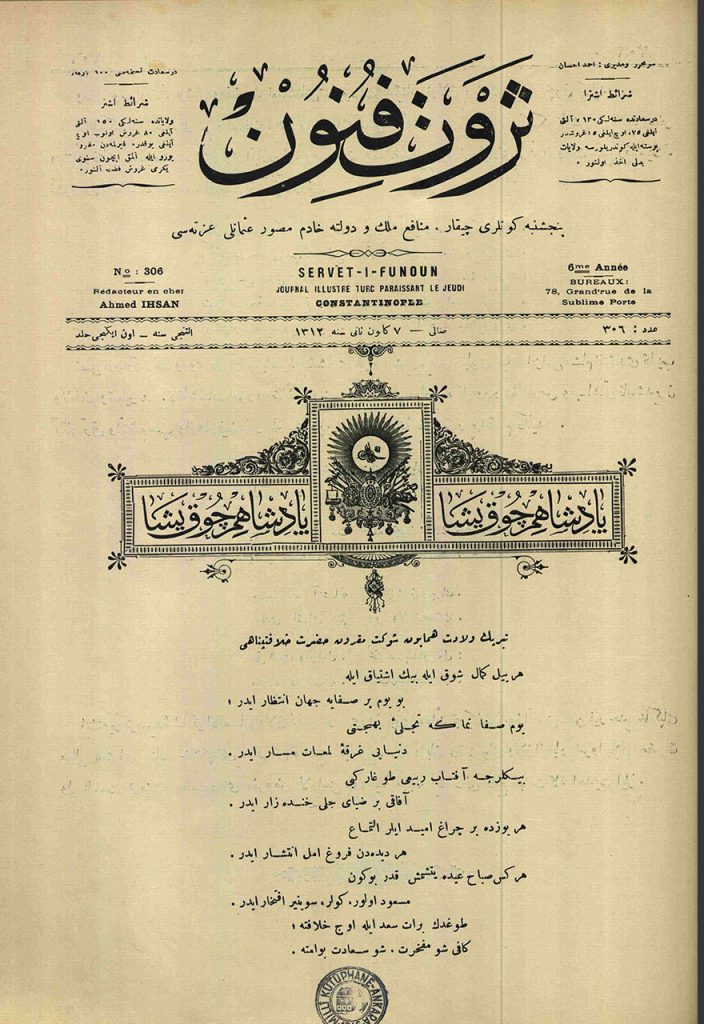 سر محرر و مدیری : احمد احسان
شرائط اشترا
در سعادتده سنه‌لکی ۱۳۰، آلتی
آیلغی ۷۵، اوچ آیلغی
پوسته ایله کوندریلورسه ولایات
بدلی اخذ اولنور
در سعادت نسخه‌سی ۱۰۰ پاره‌در
شرائط اشترا
ولایاتده سنه‌لکی ۱۵۰ آلتی
آیلغی ۸۰ غروش اولوب اوچ
آیلغی یوقدر.
بورو ایله آلمق ایچون سنوی
یکرمی غروش فضله آلنور
ثروت فنون
پنجشنبه کونلری چیقار . منافع ملك و دولته خادم مصور عثمانلی غزته‌سی
No: 306
Rédacteur en chef
Ahmed IHSAN
SERVET-I-FUNOUN
JOURNAL ILLUSTRE TURC PARAISSANT LE JEUDI
CONSTANTINOPLE
6me Année
BUREAUX:
78, Grand'rue de la
Sublime Porte
عدد : ۳۰۶
صالی — ۷ کانون ثانی سنه ۱۳۱۲
التنجی سنه — اون ایکنجی جلد
پادشاهم چوق یشا
پادشاهم چوق یشا
تبریك ولادت همایون شوکت مقرون حضرت خلافتپناهی
هر ییل کمال شوق ایله بیك اشتیاق ایله
بو یوم پر صفایه جهان انتظار ایدر ؛
یوم صفا نما که تجلیٔ بهجتی
دنیایی غرقهٔ لمعات مسار ایدر .
بیکلرجه آفتاب ربیعی طوغار کبی
آفاقی بر ضیای جلی خنده زار ایدر .
هر یوزده بر چراغ امید ایلر التماع
هر دیده‌دن فروغ امل انتشار ایدر .
هرکس صباح عیده یتشمش قدر بوکون
مسعود اولور، کولر، سوینیر افتخار ایدر .
طوغدك برات سعد ایله اوج خلافته ؛
کافی شو مفخرت . شو سعادت بو امته .
MİLLİ KÜTÜPHANE-ANKARA